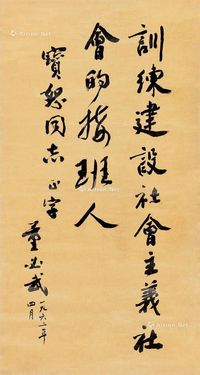 訓練建設社會主義社
會的接班人
寶恕同志正字
董必武
一九六二年
四月